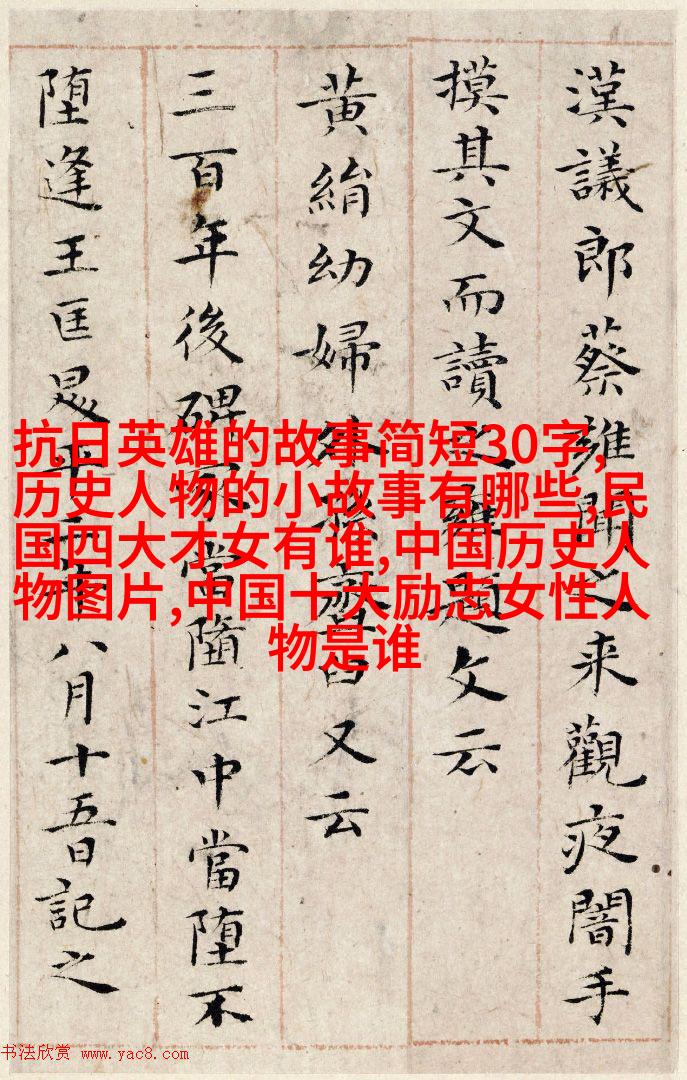 漢議郎蔡雍聞之来觀夜闇手
摸其文而讀之雍題文云
黄絹幼婦外孫齏臼又云
三百年後碑冢當墮江中當墮不
墮逢王匡昇平二年八月十五日記之
抗日英雄的故事简短30字,
历史人物的小故事有哪些,民
国四大才女有谁,中国历史人
物图片,中国十大励志女性人
物是谁
书法欣赏 www.yac8.com